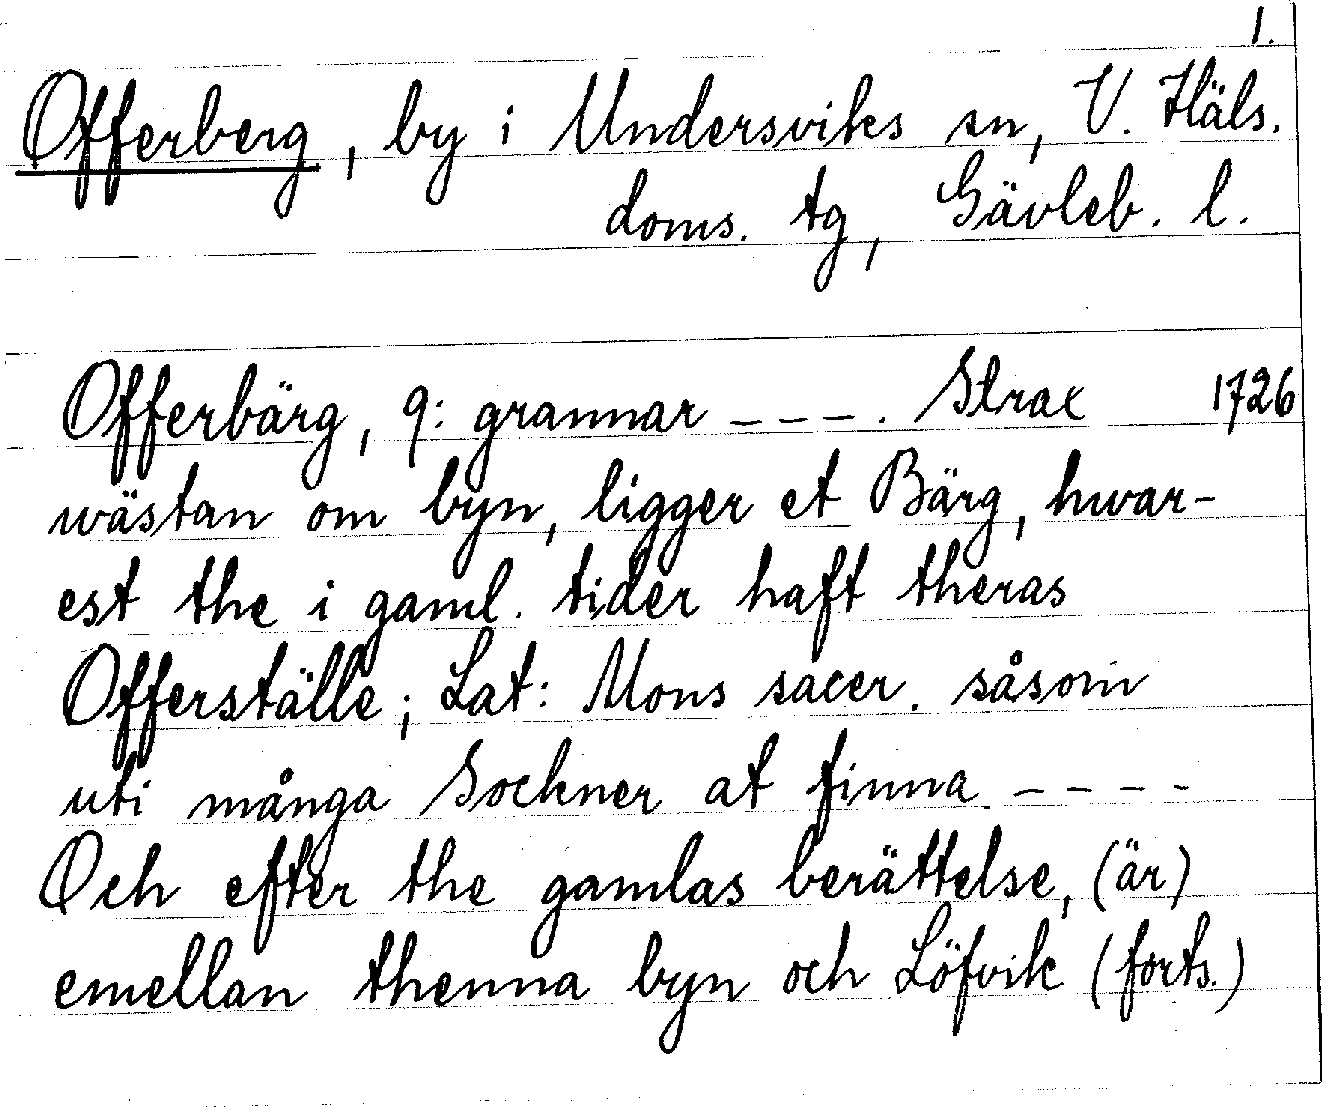 1.
Offerberg, by i Undersviks sn, V. Häls.
doms. tg, Gävleb. l.
Offerbärg, 9: grannar - - - . Strax 1726
wästan om byn, ligger et Bärg, hwar-
est the i gaml. tider haft theras
Offerställe; Lat: Mons sacer. såsom
uti många Sockner at finna - - - -
Och efter the gamlas berättelse, (är)
emellan thenna byn och Löfvik (forts.)